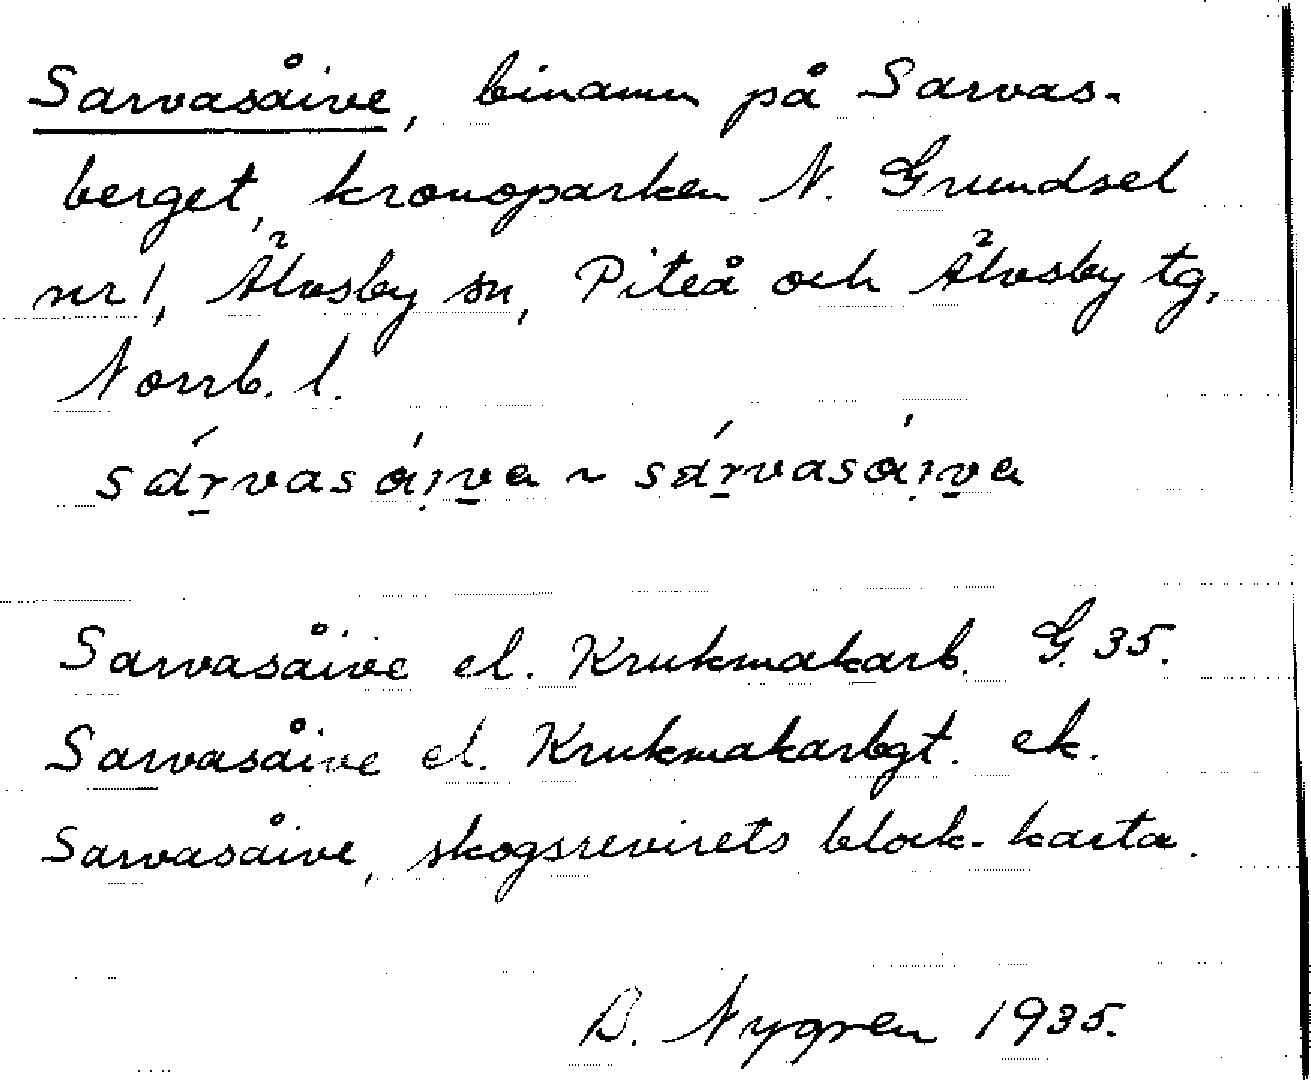 Sarvasåive, binamn på Sarvas-
berget, kronoparken N. Grundsel
nr 1, Älvsby sn, Piteå och Älvsby tg,
Norrb. l.
sárvasáiva ~ sárvasáiva
Sarvasåive el. Krukmakarb. G. 35.
Sarvasåive el. Krukmakarbgt. ek.
Sarvasåive, skogsrevirets block-karta.
B. Nygren 1935.